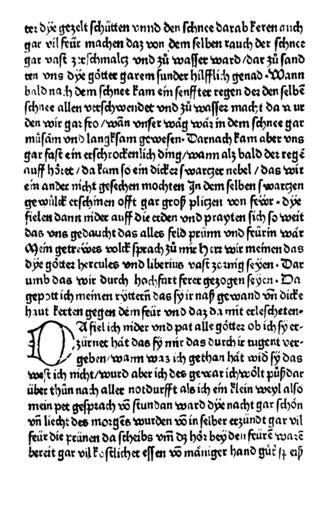 ter dye gezelt schütten vnnd den schnee darab keren auch
gar vil feür machen daz von dem selben rauch der schnee
gar vast zerschmalcz vnd zů wasser ward / dar zů sand
ten vns dye götter garem sunder hilfflich genad · Wann
bald nach dem schnee kam ein senffter regen der den selbē
schnee allen verschwendet vnd zů wasser macht da wur
den wir gar fro / wān vnser wäg wār in dem schnee gar
můsam vnd langksam gewesen · Darnach kam aber vns
gar fast ein erschrockenlich ding / wann alz bald der regē
auff höret / da kam so ein dicker swarczer nebel / das wir
ein ander nicht gesechen mochten In dem selben swarczen
gewülck erschinen offt gar groß pliczen von feẅr · dye
fielen dann nider auff die erden vnd prayten sich so weit
das vns gedaucht das alles feld prünn vnd feürin wār
Mein getreẅes volck sprach zů mir Herr wir meinen das
dye götter hercules vnd liberius vast zornig seyen · Dar
umb das wir durch hochfart ferer gezogen seyen · Da
gepott ich meinen ryttern das sy ir naß gewand vn̄ dicke
haut ketten gegen dem feür vnd daz da mit erlescheten ·
DA fiel ich nider vnd pat alle götter ob ich sy er
zürnet hāt das sy mir das durch ir tugent ver
geben / wann waz ich gethan hāt wid sy das
west ich nicht / wurd aber ich des gewar ich wölt půß dar
über thůn nach aller notdurfft als ich ein klein weyl also
mein pet gesprach vō stundan ward dye nacht gar schön
vn̄ liecht des morgēs wurden vō in selber erzündt gar vil
feür die prānen da scheibs vm̄ dz hör bey den feürē warē
berait gar vil kostlicher essen vō mäniger hand gůt eß